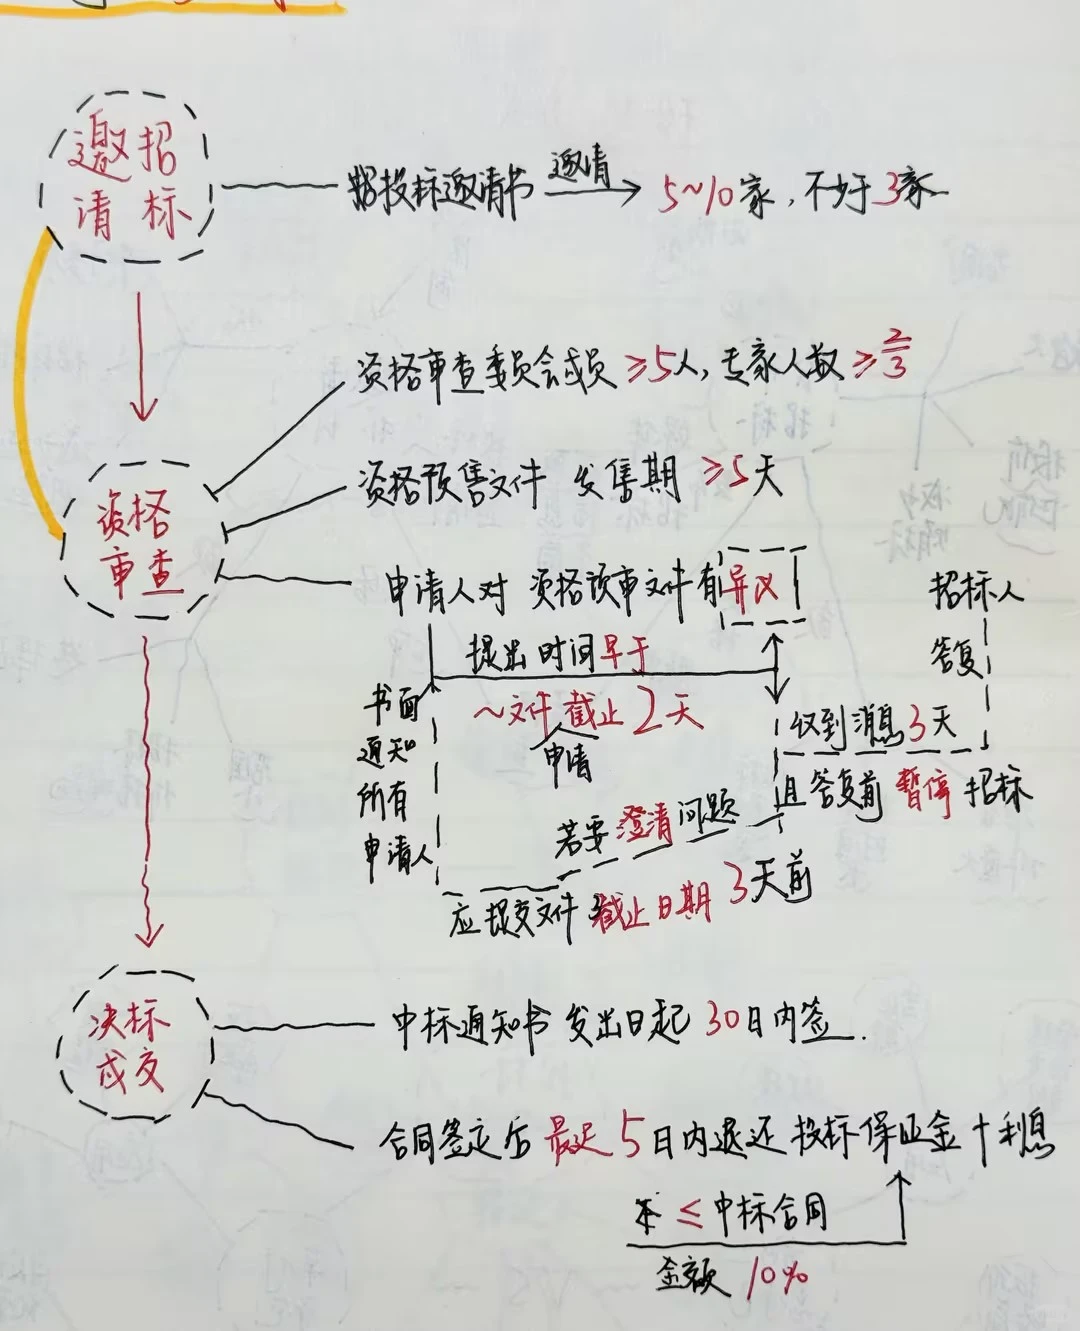 邀请招标
投标邀请书 邀请 5~10家，不少于3家
资格审查委员会成员≥5人，专家人数≥2/3
资格预售文件 发售期≥5天
资格审查
申请人对 资格预审文件有异义
提出时间早于
~文件截止2天
申请
招标人
答复
收到消息3天
且答复前暂停招标
书面
通知
所有
申请人
若要澄清问题
应提交文件截止日期3天前
决标成交
中标通知书 发出日起30日内签.
合同签定后最迟5日内退还投标保证金+利息
本≤中标合同
金额10%